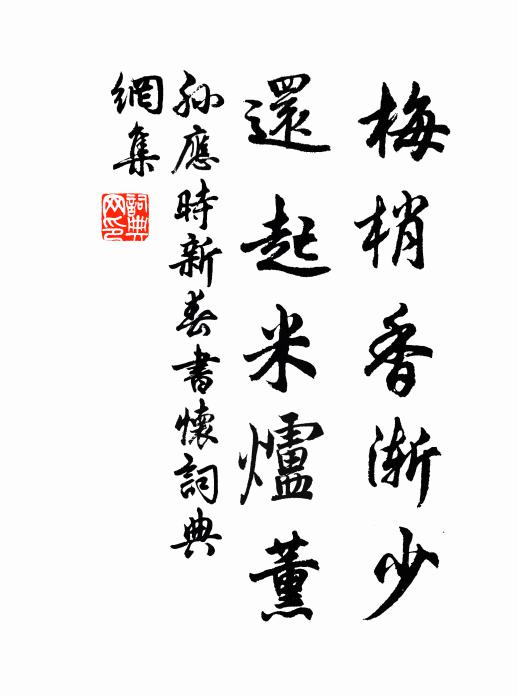 梅梢香漸少
還起米爐薰
孙應時新春書懷詞典
網集
詞典
网印